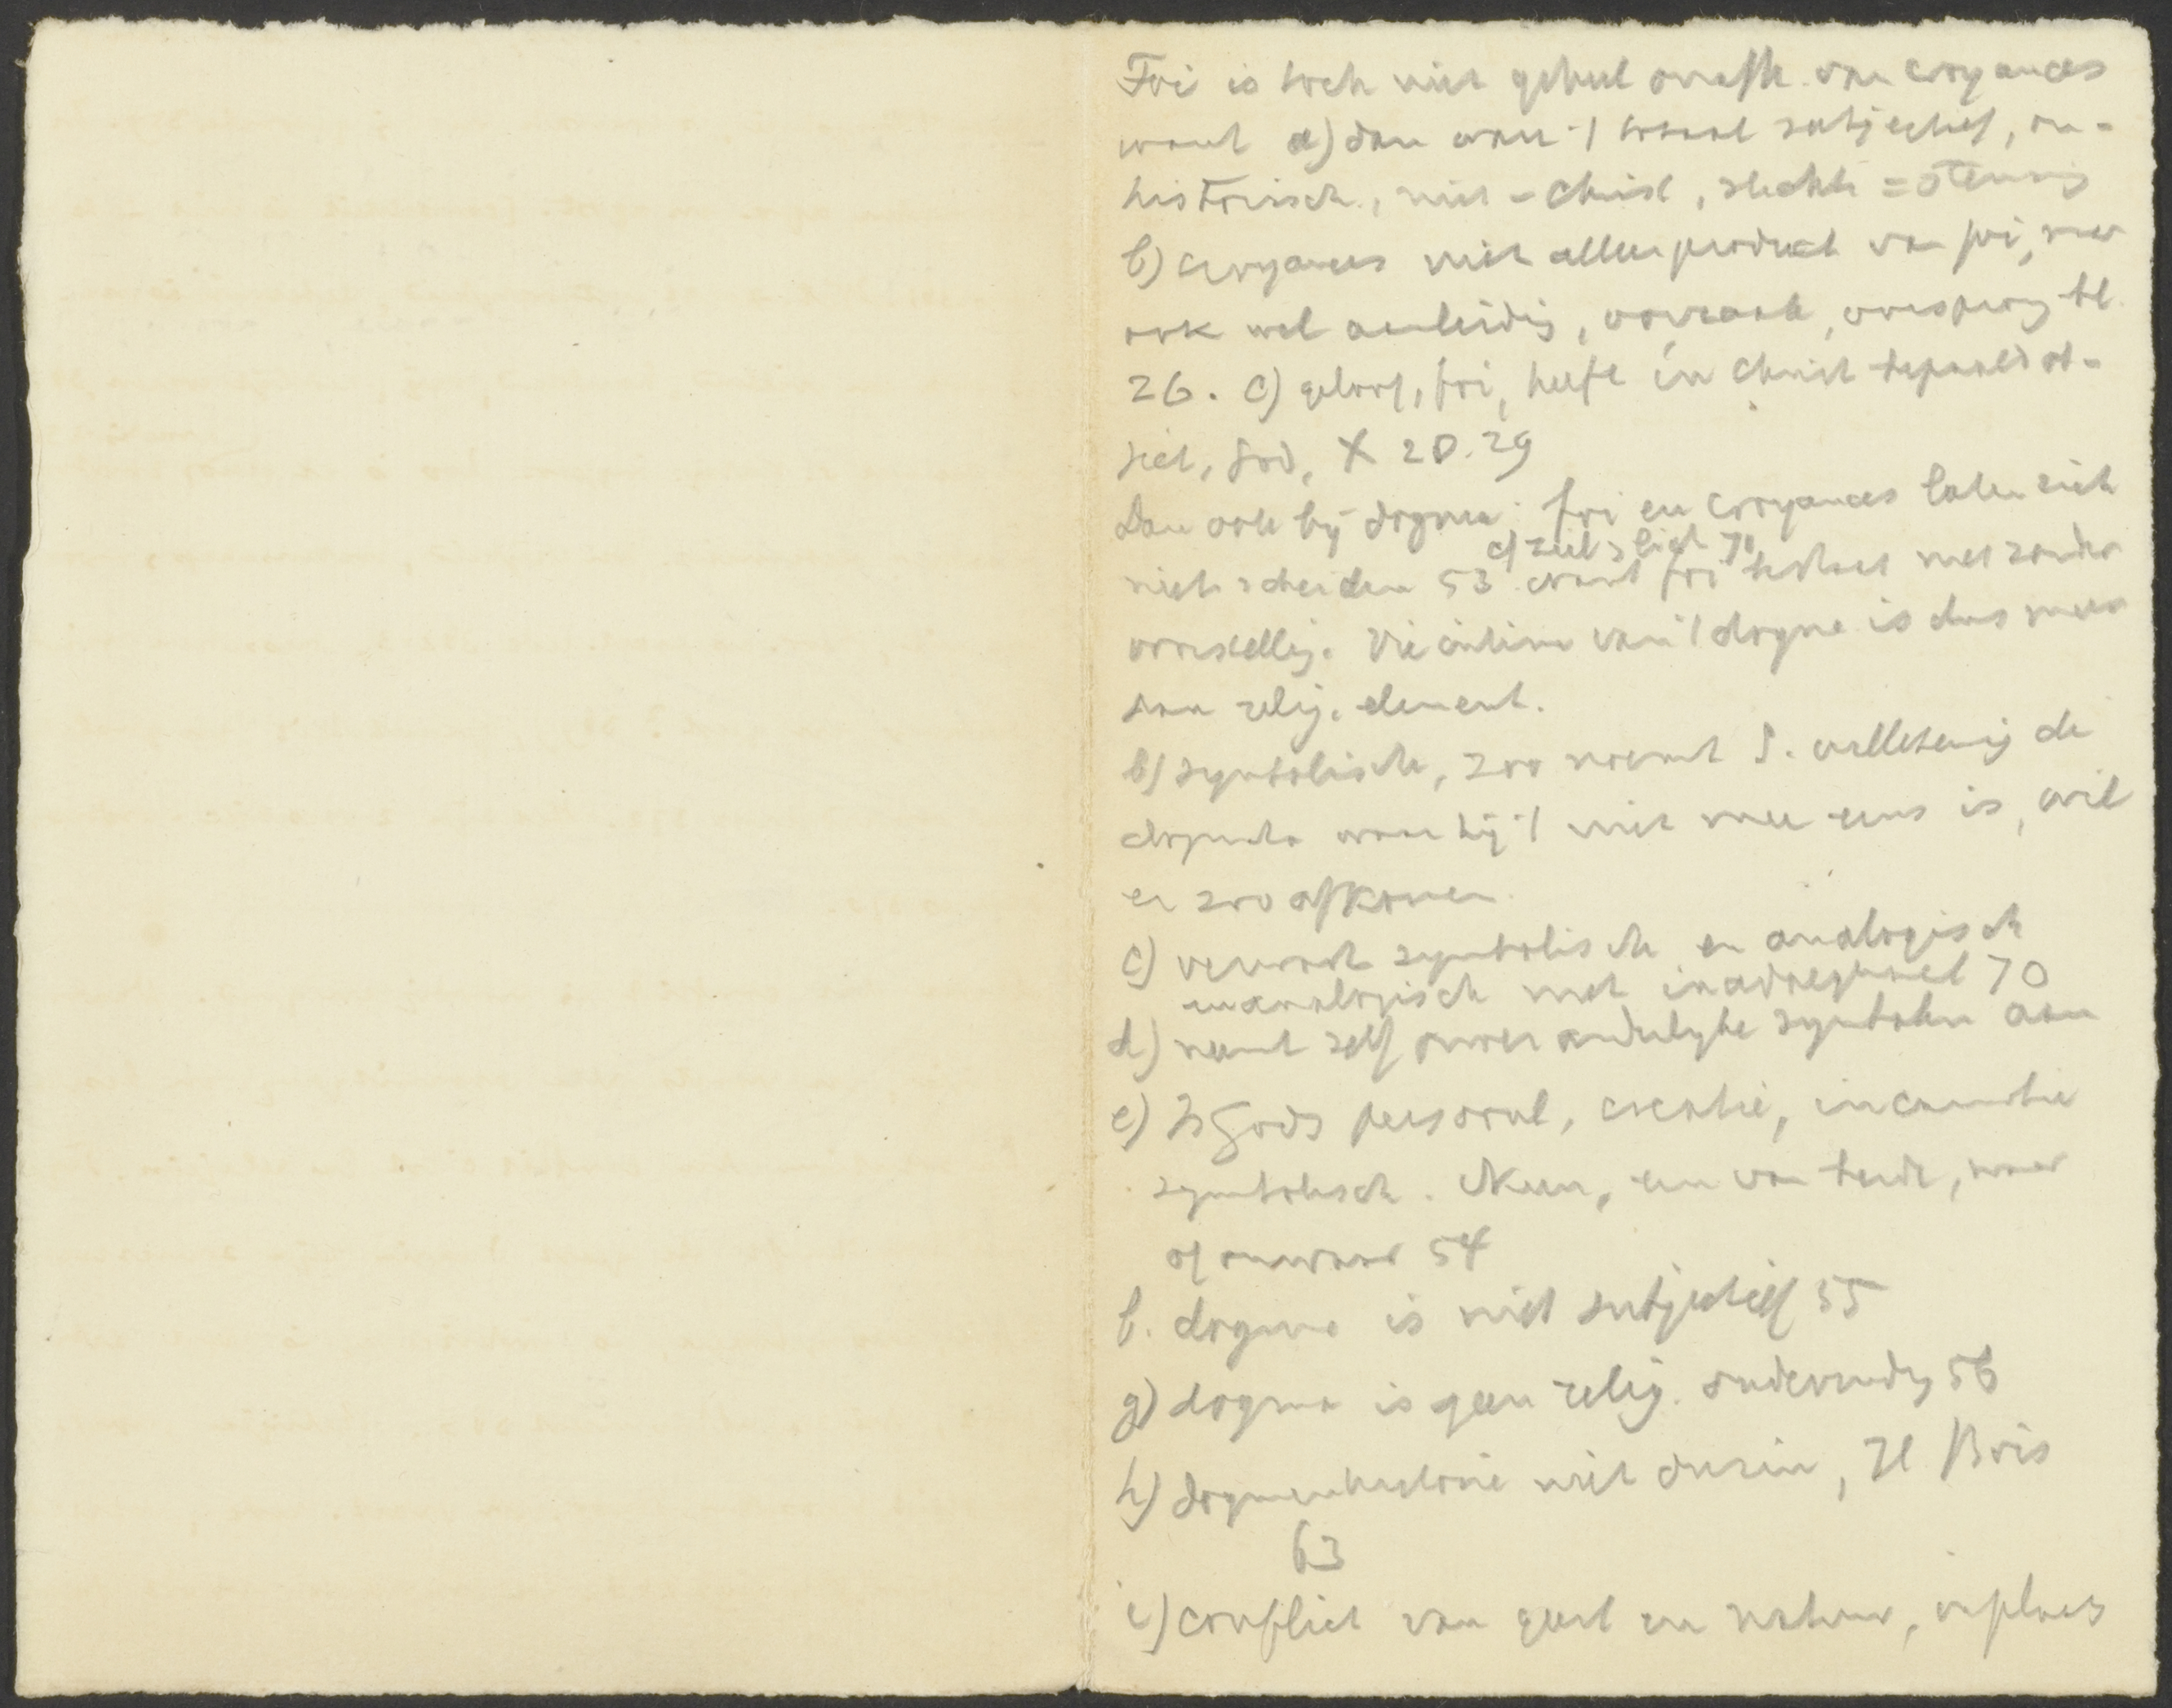 Foi is toch niet geheel onafh. van croyances
want a) dan ware 't totaal subjectief, on-
historisch, niet = Christ, slechts = stemming
b) croyances niet alleen product van foi, maar
ook wel aanleiding, oorzaak, oorsprong bl.
26. c) geloof, foi, heeft in Christ bepaald ob-
ject, God, X 28.29
Dan ook bij dogma: foi en croyances laten zich
cf ziel > lich 70
niet scheiden 53 want foi bestaat niet zonder
voorstelling. Vie intime van 't dogme is dus meer
dan relig. element.
b) symbolische, zoo noemt S. willekeurig de
dogmata waar hij 't niet mee eens is, wil
er zoo afkomen.
c) verwart symbolisch en analogisch
en analogisch met inadaequaat 70
d) neemt zelf onveranderlijke symbolen aan
e) Is Gods persoonl, creatie, incarnatie
symbolisch. Neen, een van beide, waar
of onwaar 54
f. dogma is niet subjectief 55
g) dogma is geen relig. ondervinding 56
h) dogmenhistorie niet durin, H Bois
63
i) conflict van geest en natuur, in plaats